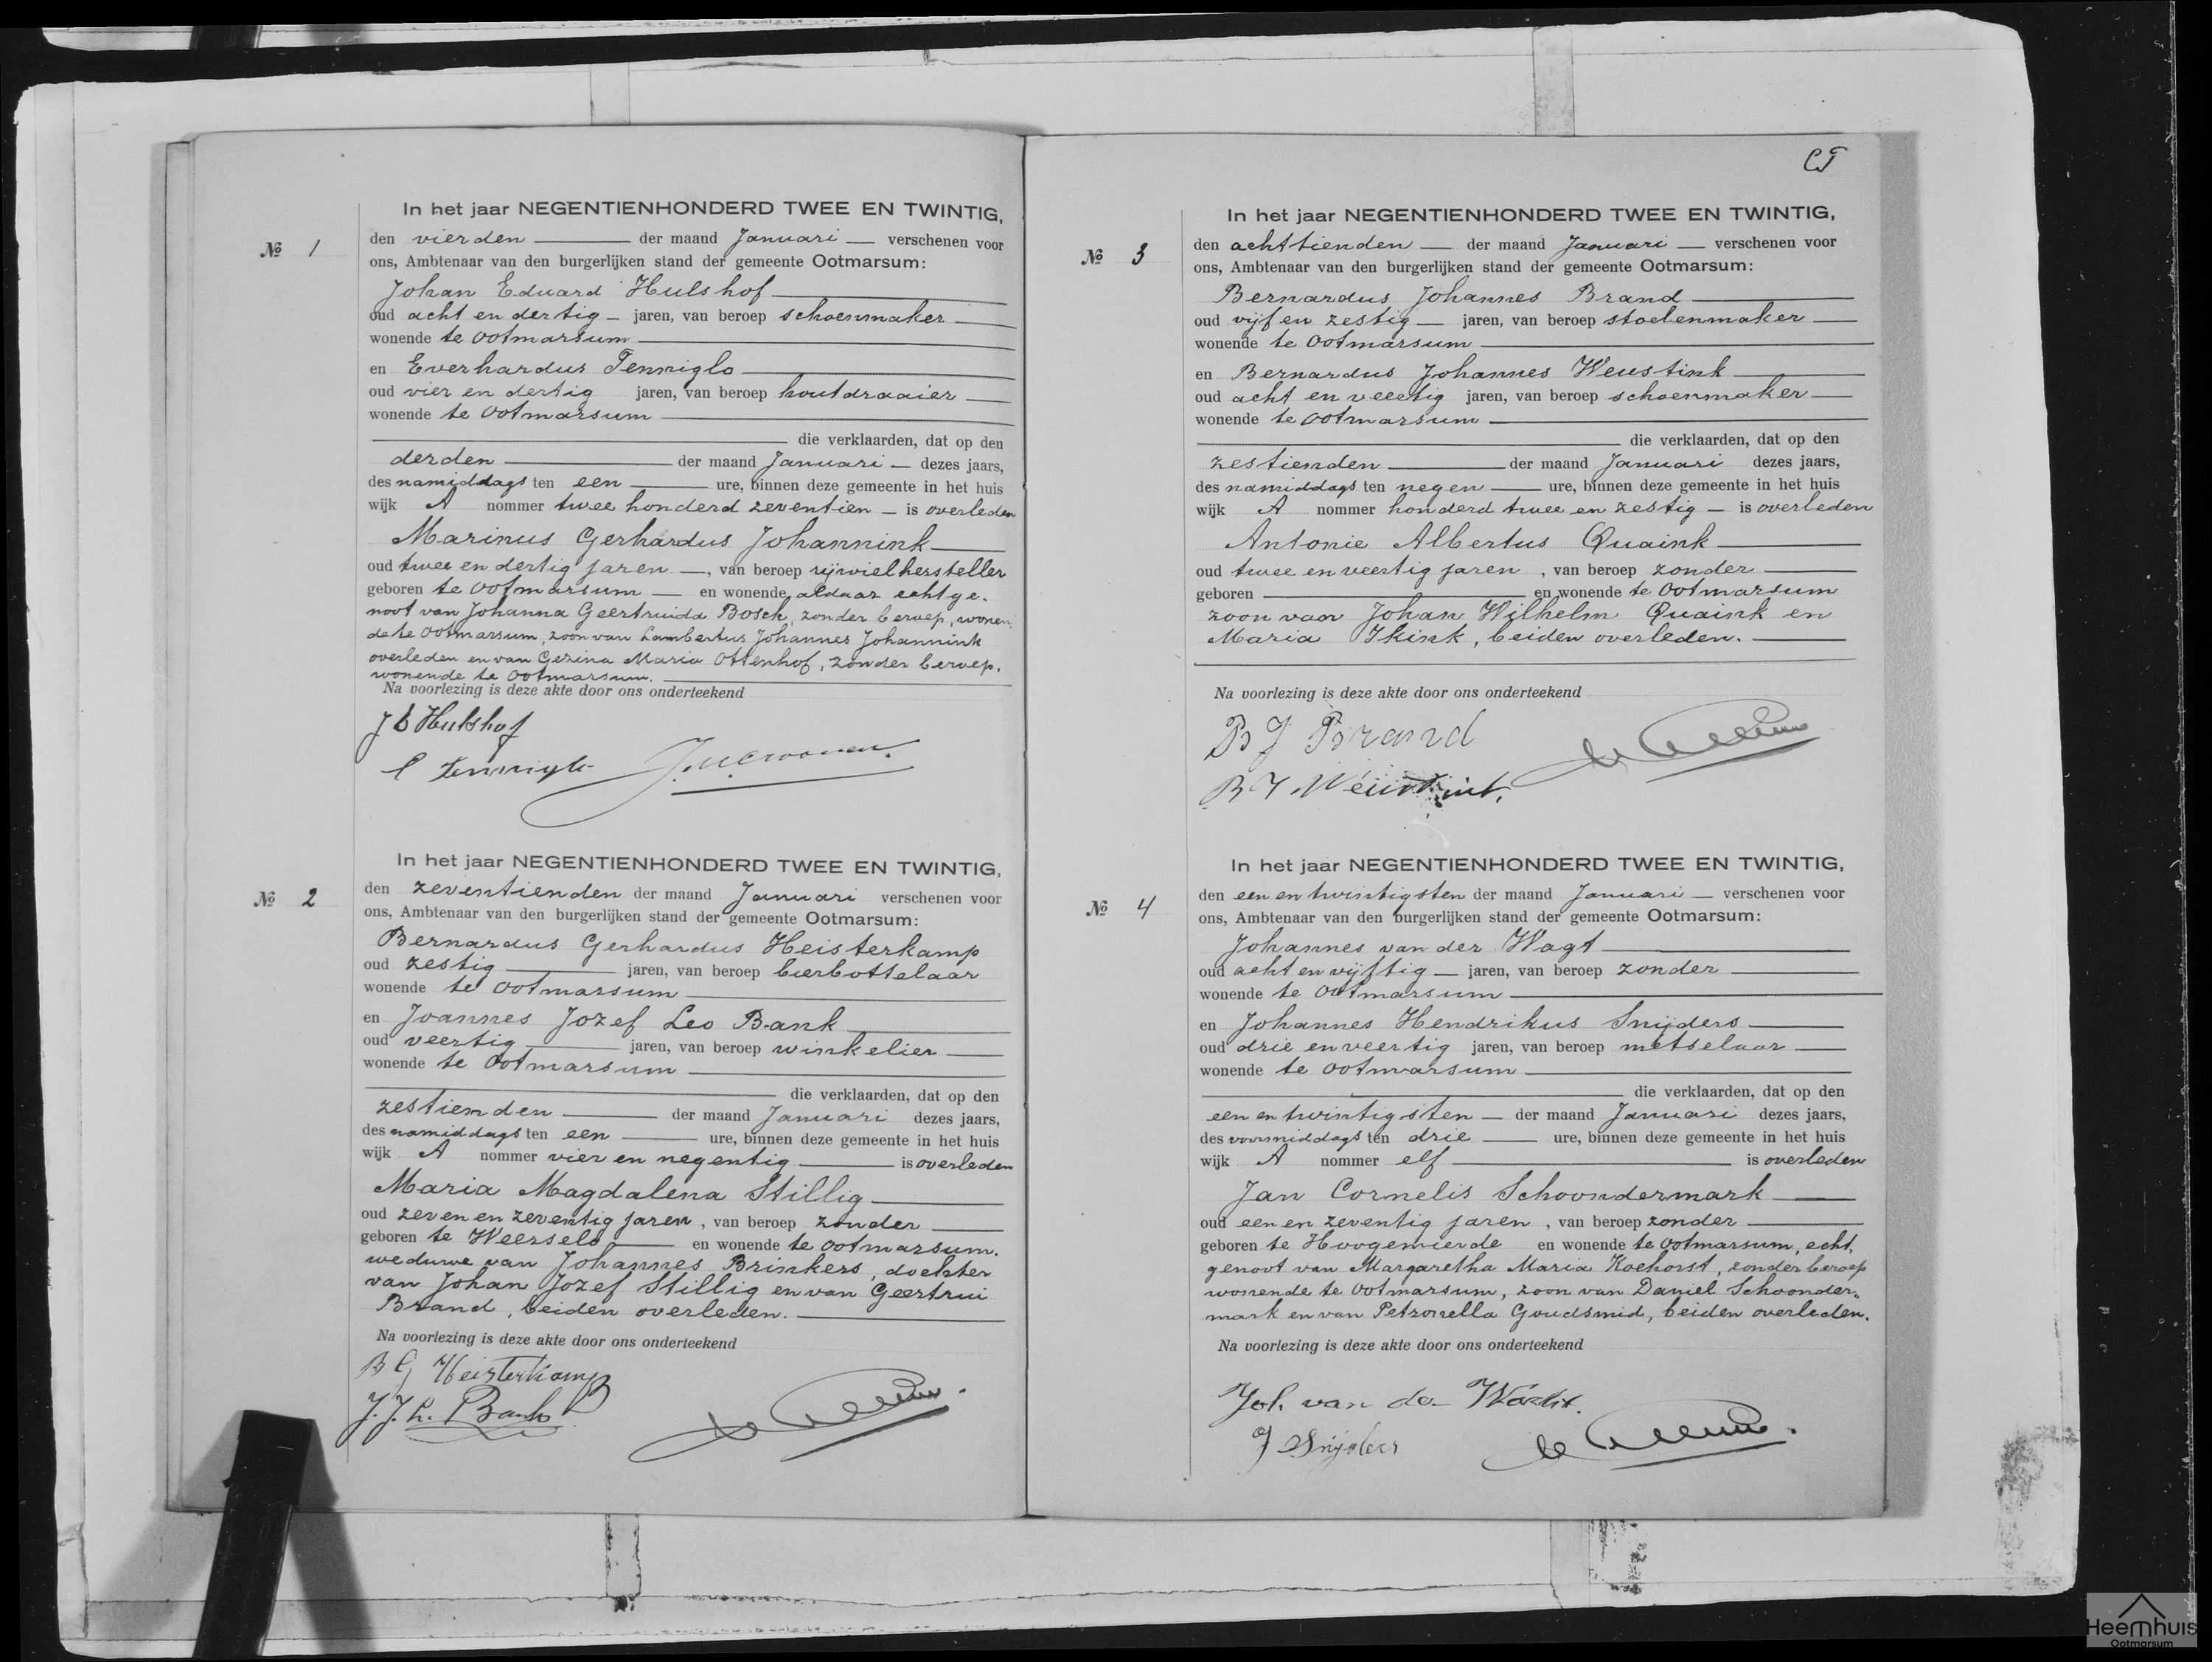 In het jaar NEGENTIENHONDERD TWEE EN TWINTIG,
№ 1
den vierden der maand Januari verschenen voor
ons, Ambtenaar van den burgerlijken stand der gemeente Ootmarsum:
Johan Eduard Hulshof
oud acht en dertig jaren, van beroep schoenmaker
wonende te Ootmarsum
en Everhardus Tenniglo
oud vier en dertig jaren, van beroep houtdraaier
wonende te Ootmarsum
die verklaarden, dat op den
derden der maand Januari dezes jaars,
des namiddags ten een ure, binnen deze gemeente in het huis
wijk A nommer twee honderd zeventien is overleden
Marinus Gerhardus Johannink
oud twee en dertig jaren, van beroep rijwielhersteller
geboren te Ootmarsum en wonende aldaar echtge-
noot van Johanna Geertruida Bosch, zonder beroep, wonen
de te Ootmarsum, zoon van Lambertus Johannes Johannink
overleden en van Gezina Maria Ottenhof, zonder beroep,
wonende te Ootmarsum.
Na voorlezing is deze akte door ons onderteekend
J E Hulshof
E Tenniglo
In het jaar NEGENTIENHONDERD TWEE EN TWINTIG,
№ 2
den zeventienden der maand Januari verschenen voor
ons, Ambtenaar van den burgerlijken stand der gemeente Ootmarsum:
Bernardus Gerhardus Heisterkamp
oud zestig jaren, van beroep bierbottelaar
wonende te Ootmarsum
en Joannes Jozef Leo Bank
oud veertig jaren, van beroep winkelier
wonende te Ootmarsum
die verklaarden, dat op den
zestienden der maand Januari dezes jaars,
des namiddags ten een ure, binnen deze gemeente in het huis
wijk A nommer vier en negentig is overleden
Maria Magdalena Stillig
oud zeven en zeventig jaren, van beroep zonder
geboren te Weerselo en wonende te Ootmarsum.
weduwe van Johannes Brinkers, dochter
van Johan Jozef Stillig en van Geertrui
Brand, beiden overleden.
Na voorlezing is deze akte door ons onderteekend
B G Heisterkamp
J. J. L. Bank
In het jaar NEGENTIENHONDERD TWEE EN TWINTIG,
№ 3
den achttienden der maand Januari verschenen voor
ons, Ambtenaar van den burgerlijken stand der gemeente Ootmarsum:
Bernardus Johannes Brand
oud vijf en zestig jaren, van beroep stoelenmaker
wonende te Ootmarsum
en Bernardus Johannes Weustink
oud acht en veertig jaren, van beroep schoenmaker
wonende te Ootmarsum
die verklaarden, dat op den
zestienden der maand Januari dezes jaars,
des namiddags ten negen ure, binnen deze gemeente in het huis
wijk A nommer honderd twee en zestig is overleden
Antonie Albertus Quaink
oud twee en veertig jaren, van beroep zonder
geboren en wonende te Ootmarsum
zoon van Johan Wilhelm Quaink en
Maria Ikink, beiden overleden.
Na voorlezing is deze akte door ons onderteekend
B J Brand
B J Weustink.
In het jaar NEGENTIENHONDERD TWEE EN TWINTIG,
№ 4
den een en twintigsten der maand Januari verschenen voor
ons, Ambtenaar van den burgerlijken stand der gemeente Ootmarsum:
Johannes van der Wagt
oud acht en vijftig jaren, van beroep zonder
wonende te Ootmarsum
en Johannes Hendrikus Snijders
oud drie en veertig jaren, van beroep metselaar
wonende te Ootmarsum
die verklaarden, dat op den
een en twintigsten der maand Januari dezes jaars,
des voormiddags ten drie ure, binnen deze gemeente in het huis
wijk A nommer elf is overleden
Jan Cornelis Schoondermark
oud een en zeventig jaren, van beroep zonder
geboren te Hoogemierde en wonende te Ootmarsum, echt,
genoot van Margaretha Maria Koehorst, zonder beroep
wonende te Ootmarsum, zoon van Daniel Schoonder„
mark en van Petronella Goudsmid, beiden overleden.
Na voorlezing is deze akte door ons onderteekend
Joh. van der Wacht.
J Snijders
Heemhuis
Ootmarsum